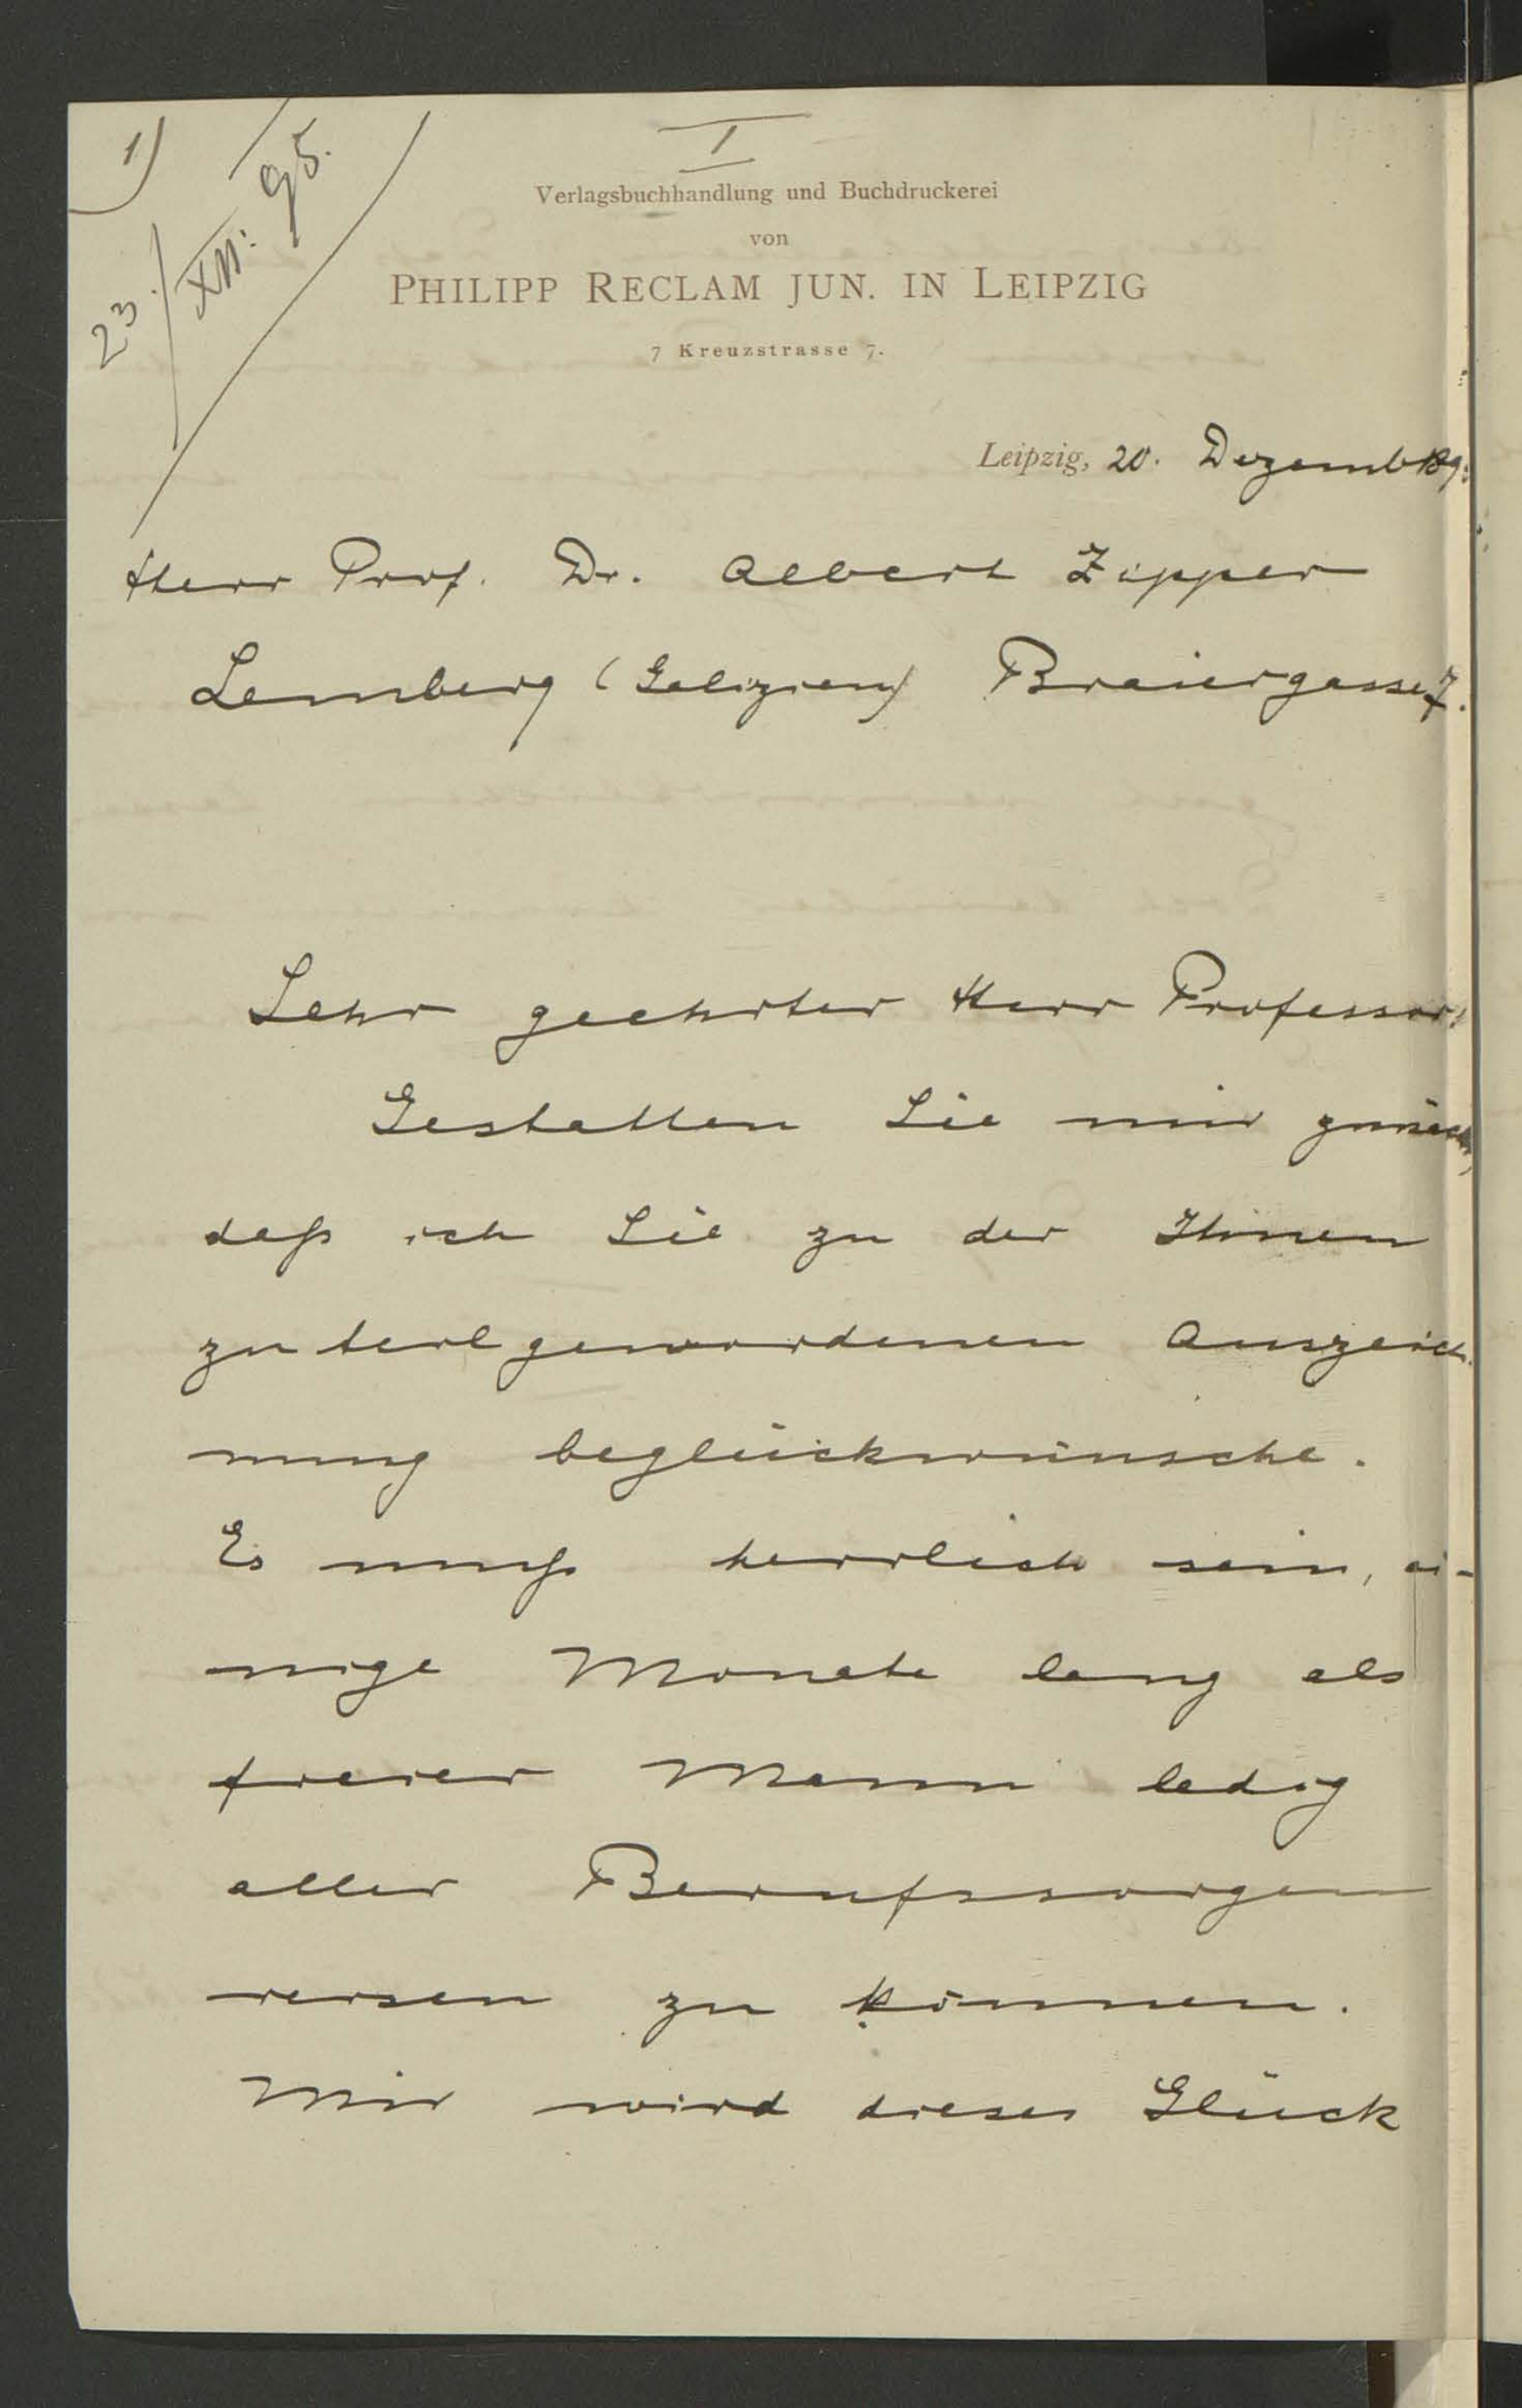 1)
23./XII. 95.
I
Verlagsbuchhandlung und Buchdruckerei
von
PHILIPP RECLAM JUN. IN LEIPZIG
7 Kreuzstrasse 7.
Leipzig, 20. Dezemb 189
Herr Prof. Dr. Albert Zipper
Lemberg (Galizien) Braiergasse 7.
Sehr geehrter Herr Professor!
Gestatten Sie mir
daß ich Sie zu der Ihnen
zu teil gewordenen Auszeich-
nung beglückwünsche.
Es muß herrlich sein, ei-
nige Monate lang als
freier Mann ledig
aller Berufssorgen
reisen zu können.
Mir wird dieses Glück